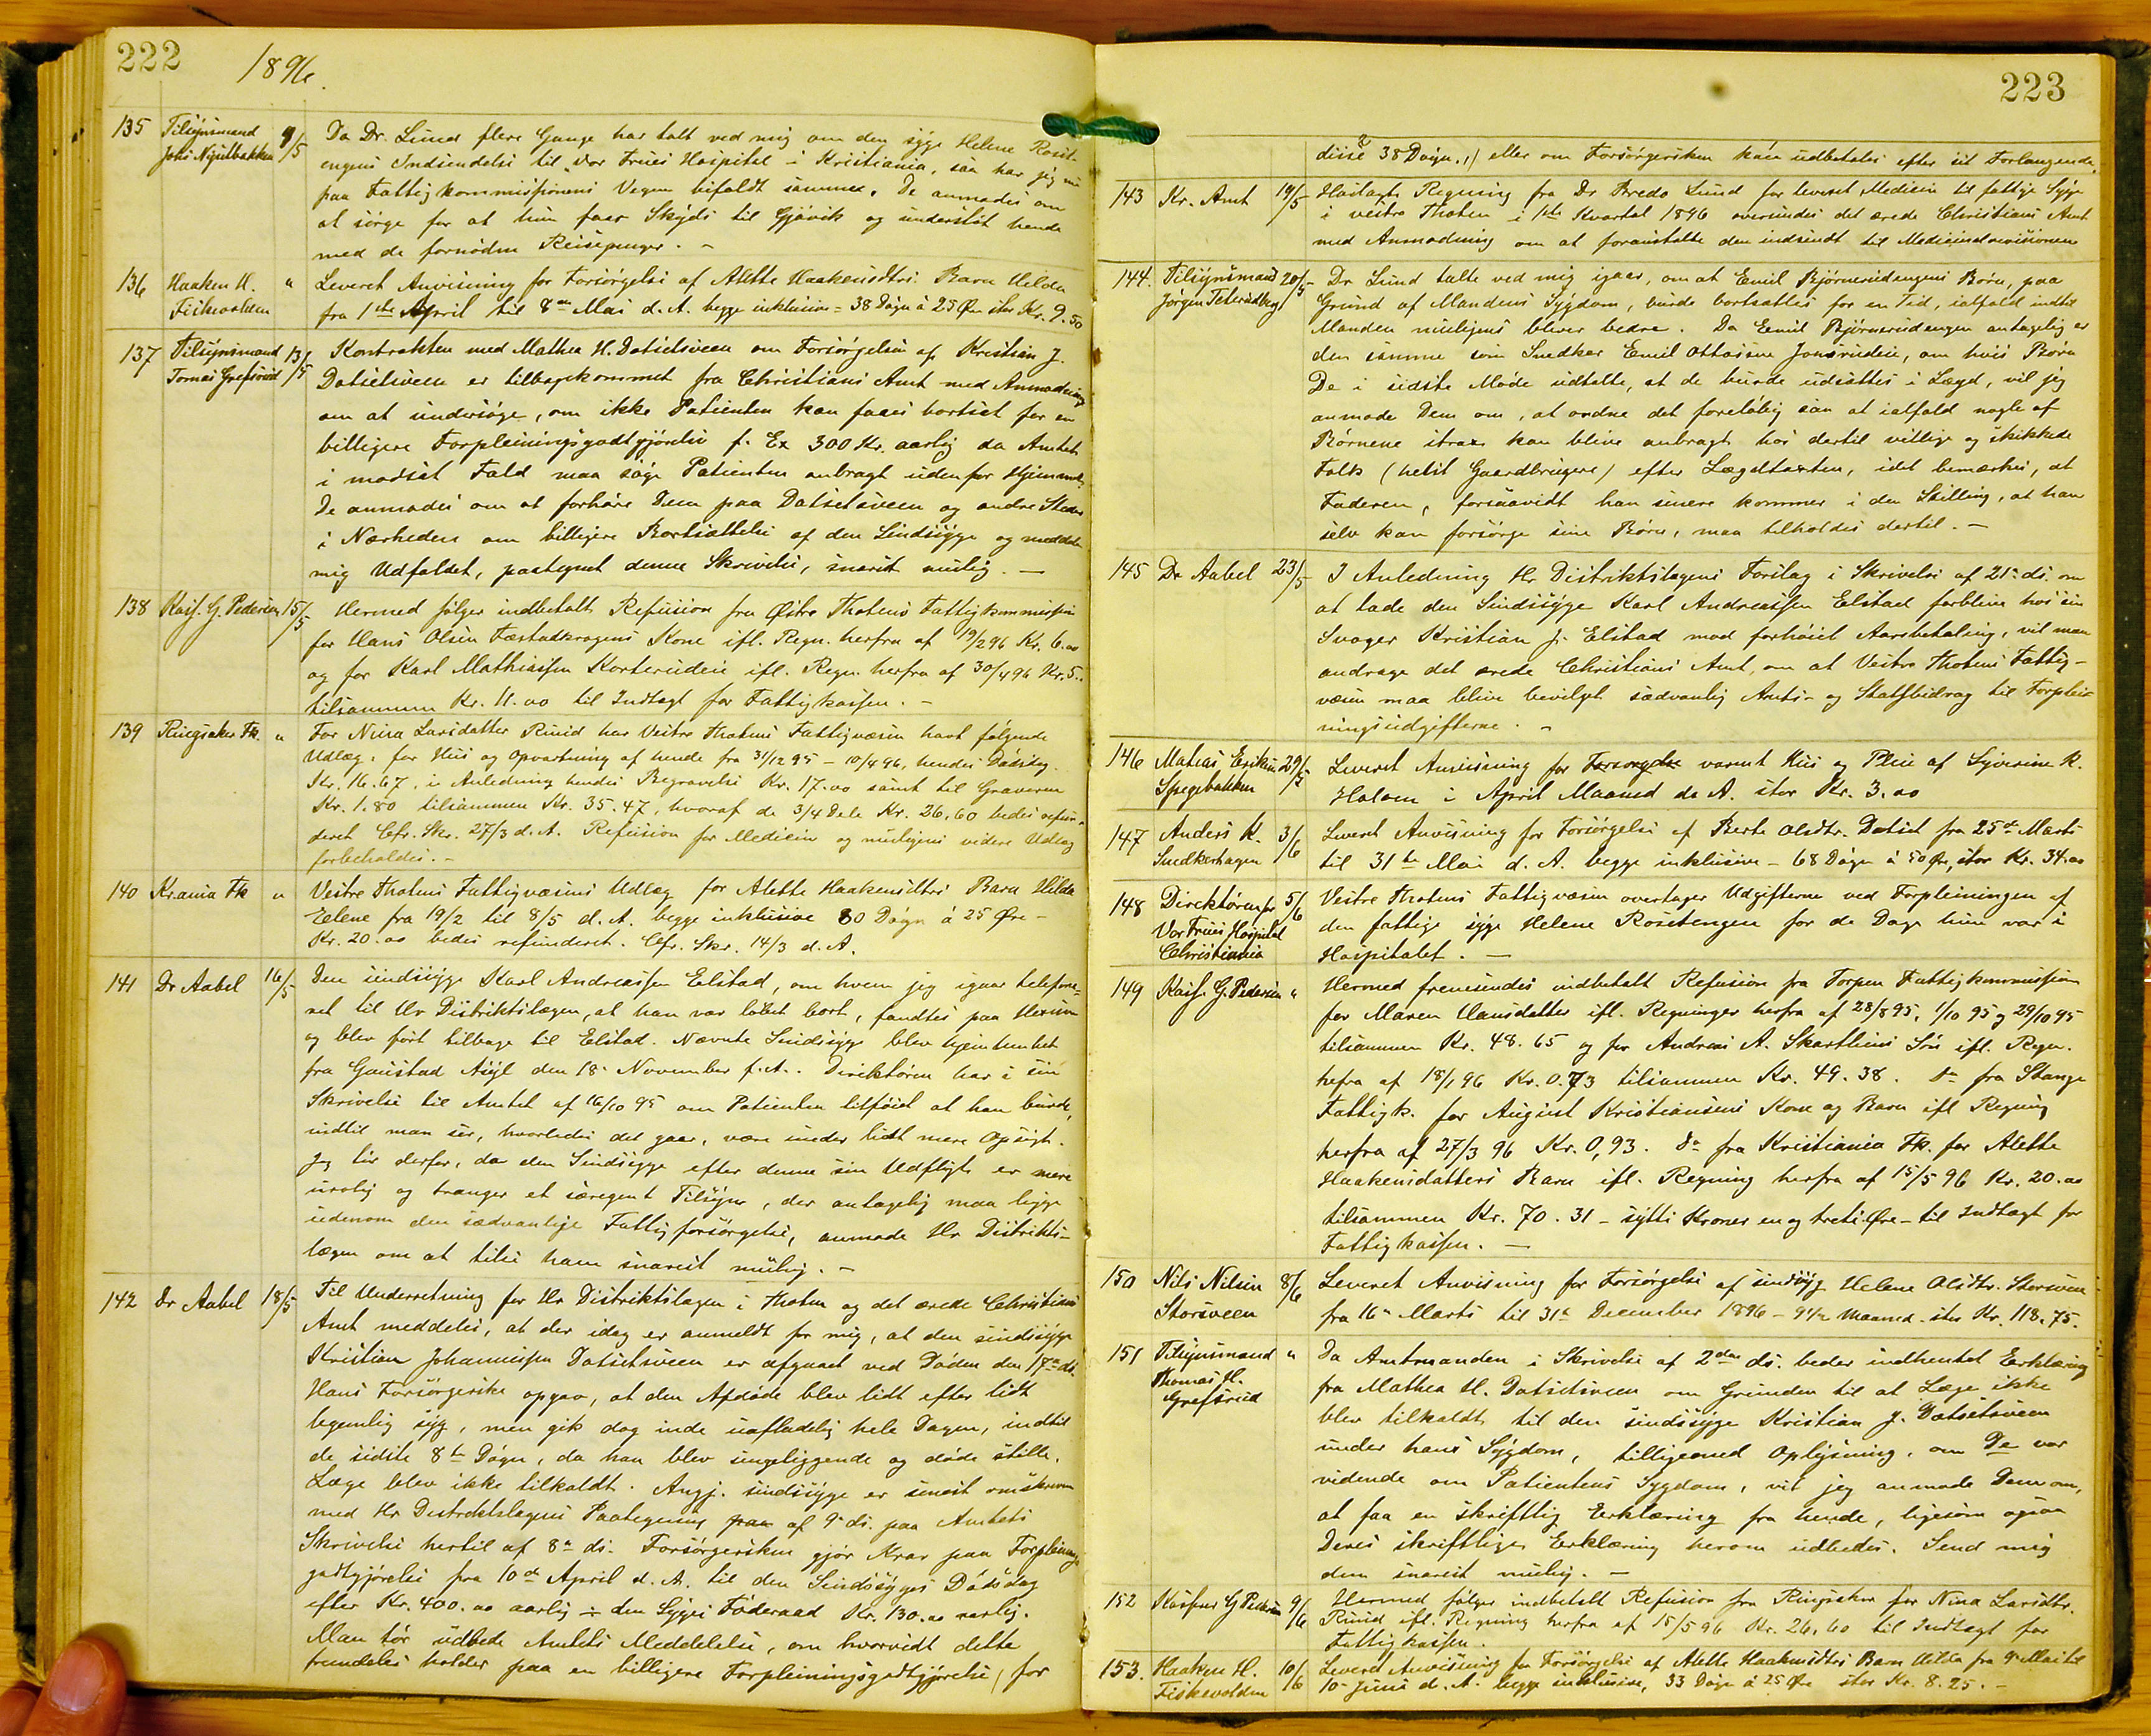 222
1896.
135 Tilsynsmand 9/5 Da Dr. Lund flere Gange har talt ved mig om den syge Helene Rosit-
Johs Nysetbakken engens Indsendelse til Vor Frues Hospital i Kristiania, saa har jeg nu
paa Fattigkommissionens Vegne bifaldt samme. De anmodes om
at sørge for at hun faar Skyds til Gjøvik og understøt hende
med de fornødne Reisepenger. -
136 Haaken H. " Leveret Anvisning for Forsørgelse af Alette Haakensdtrs. Barn Hilda
Fiskevolden fra 1ste April til 8de Mai d. A. begge inklusive = 38 Døgn à 25 Øre stor Kr. 9.50
137 Tilsynsmand 13/5 Kontrakten med Mathea H. Dotsetsveen om Forsørgelsen af Kristian J.
Tomas Grefsrud Dotsetsveen er tilbagekommet fra Christians Amt med Anmodning
om at undersøge, om ikke Patienten kan faaes bortsat for en
billigere Forpleiningsgodtgjørelse f. Ex 300 Kr. aarlig da Amtet
i modsat Fald maa søge Patienten anbragt udenfor Hjemmet.
De anmodes om at forhøre Dem paa Dotsetsveen og andre Steder
i Nærheden om billigere Bortsættelse af den Sindssyge og meddele
mig Udfaldet, paategnet denne Skrivelse, snarest mulig. -
138 Kasf. G. Pedersen 15/5 Hermed følger indbetalt Refusion fra Østre Thotens Fattigkommission
for Hans Olsen Fæstadkragens Kone ifl. Regn. herfra af 19/2 96 Kr. 6.00
og for Karl Mathiassen Korterudeie ifl. Regn. herfra af 30/4 96 Kr. 5..
tilsammen Kr. 11.00 til Indtægt for Fattigkassen. -
139 Ringsaker Fk. " For Nina Larsdatter Ruud har Vestre Thotens Fattigvæsen havt følgende
Udlæg: for Hus og Opvartning af hende fra 31/12 95 - 10/4 96, hendes Dødsdag.
Kr. 16.67, i Anledning hendes Begravelse Kr. 17.00 samt til Graveren
Kr. 1.80 tilsammen Kr. 35.47, hvoraf de 3/4 Dele Kr. 26,60 bedes refun-
deret Cfr. Skr. 27/3 d. A. Refusion for Medicin og muligens videre Udlæg
forbeholdes. -
140 Kr.ania Fk " Vestre Thotens Fattigvæsens Udlæg for Alette Haakensdtrs Barn Hilda
Helene fra 19/2 til 8/5 d. A. begge inklusive 80 Døgn à 25 Øre -
Kr. 20.00 bedes refunderet. Cfr. Skr. 14/3 d. A.
141 Dr Aabel 16/5 Den sindssyge Karl Andreassen Elstad, om hvem jeg igaar telefone-
ret til Hr Distriktslægen, at han var løbet bort, fandtes paa
og blev ført tilbage til Elstad. Nævnte Sindssyge blev hjemhentet
fra Gaustad Asyl den 18. November f. A. Direktøren har i sin
Skrivelse til Amtet af 16/10 95 om Patienten tilføiet at han burde,
indtil man ser, hvorledes det gaar, være under lidt mere Opsigt.
Jeg tør derfor, da den Sindssyge efter denne sin Udflugt er mere
urolig og trænger et særegent Tilsyn, der antagelig maa ligge
udenom den sædvanlige Fattigforsørgelse, anmode Hr Distrikts-
lægen om at tilse ham snarest mulig. -
142 Dr Aabel 18/5 Til Underretning for Hr Distriktslægen i Thoten og det ærede Christians
Amt meddeles, at der idag er anmeldt for mig, at den sindssyge
Kristian Johannessen Dotsetsveen er afgaaet ved Døden den 17de ds.
Hans Forsørgerske opgav, at den Afdøde blev lidt efter lidt
legemlig syg, men gik dog inde uafladelig hele Dagen, indtil
de sidste 8te Døgn, da han blev sengeliggende og døde stille.
Læge blev ikke tilkaldt. Angj. sindssyge er senest omskreven
med Hr Distriktslægens Paategning paa af 9. ds. paa Amtets
Skrivelse hertil af 8de ds. Forsørgersken gjør Krav paa Forpleinings-
godtgjørelse fra 10de April d. A. til den Sindssyges Dødsdag
efter Kr. 400.00 aarlig ÷ den Syges Føderaad Kr. 130.00 aarlig.
Man tør udbede Amtets Meddelelse, om hvorvidt dette
fremdeles holder paa en billigere Forpleiningsgodtgjørelse / for
223
disse 38 Døgn, / eller om Forsørgersken kan udbetales efter sit Forlangende.
143 Kr. Amt 19/5 Hoslagte Regning fra Dr Bredo Lund for leveret Medicin til fattige Syge
i vestre Thoten i 1ste Kvartal 1896 oversendes det ærede Christians Amt
med Anmodning om at foranstalte den indsendt til Medicinalrevisionen
144. Tilsynsmand 20/5 Dr. Lund talte ved mig igaar, om at Emil Bjørnerudengens Børn, paa
Jørgen Teterudberg Grund af Mandens Sygdom, burde bortsættes for en Tid, ialfald indtil
Manden muligens bliver bedre. Da Emil Bjørnerudengen antagelig er
den samme som Snedker Emil Ottosen Jonsrudeie, om hvis Børn
De i sidste Møde udtalte, at de burde udsættes i Lægd, vil jeg
anmode Dem om, at ordne det foreløbig saa at ialfald nogle af
Børnene strax kan blive anbragt hos dertil villige og skikkede
Folk (helst Gaardbrugere) efter Lægdtaxten, idet bemærkes, at
Faderen, forsaavidt han senere kommer i den Stilling, at han
selv kan forsørge sine Børn, maa tilholdes dertil. -
145 Dr Aabel 23/5 I Anledning Hr. Distriktslægens Forslag i Skrivelse af 21. ds. om
at lade den Sindssyge Karl Andreassen Elstad forblive hos sin
Svoger Kristian J. Elstad mod forhøiet Aarsbetaling, vil man
andrage det ærede Christians Amt, om at Vestre Thotens Fattig-
væsen maa blive bevilget sædvanlig Amts- og Statsbidrag til Forplei-
ningsudgifterne. -
146 Matias Eriksen 29/5 Leveret Anvisning for Forsørgelse varmt Hus og Pleie af Syverine K.
Spegebakken Holoen i April Maaned d. A. stor Kr. 3.00
147 Anders K. 3/6 Leveret Anvisning for Forsørgelse af Berte Olsdtr. Dotset fra 25de Marts
Snedkerhagen til 31te Mai d. A. begge inklusive - 68 Døgn à 50 Øre, stor Kr. 34.00
148 Direktøren for 5/6 Vestre Thotens Fattigvæsen overtager Udgifterne ved Forpleiningen af
Vor Frues Hospital den fattige syge Helene Rositengen for de Dage hun var i
Christiania Hospitalet. -
149 Kasf. G. Pedersen " Hermed fremsendes indbetalt Refusion fra Torpen Fattigkommission
for Maren Hansdatter ifl. Regninger herfra af 28/8 95, 1/10 95 og 29/10 95
tilsammen Kr. 48.65 og for Andreas A. Skartliens Søn ifl. Regn.
hefra af 18/1 96 Kr. 0.73 tilsammen Kr. 49.38. do fra Stange
Fattigk. for August Kristiansens Kone og Barn ifl Regning
herfra af 27/3 96 Kr. 0,93. do fra Kristiania Fk. for Alette
Haakensdatters Barn ifl. Regning herfra af 15/5 96 Kr. 20.00
tilsammen Kr. 70.31 - sytti Kroner en og treti Øre - til Indtægt for
Fattigkassen. -
150 Nils Nilsen 8/6 Leveret Anvisning for Forsørgelse af sindssyg Helene Olsdtr. Storsveen
Storsveen fra 16de Marts til 31te December 1896 - 9½ Maaned - stor Kr. 118.75.
151 Tilsynsmand " Da Amtmanden i Skrivelse af 2den ds. beder indhentet Erklæring
Thomas H. fra Mathea H. Dotsetsveen om Grunden til at Læge ikke
Grefsrud blev tilkaldt til den sindssyge Kristian J. Dotsetsveen
under hans Sygdom, tilligemed Oplysning, om De var
vidende om Patientens Sygdom, vil jeg anmode Dem om,
at faa en skriftlig Erklæring fra hende, ligesom ogsaa
Deres skriftlige Erklæring herom udbedes. Send mig
dem snarest mulig. -
152 Kasserer G Pedersen 9/6 Hermed følger indbetalt Refusion fra Ringsaker for Nina Larsdtr.
Ruud ifl. Regning herfra af 15/5 96 Kr. 26,60 til Indtægt for
Fattigkassen.
153. Haaken H. 10/6 Leveret Anvisning for Forsørgelse af Alette Haakensdtrs Barn Hilda fra 9. Mai til
Fiskevolden 10. Juni d. A. begge inklusive, 33 Døgn à 25 Øre stor Kr. 8.25. -